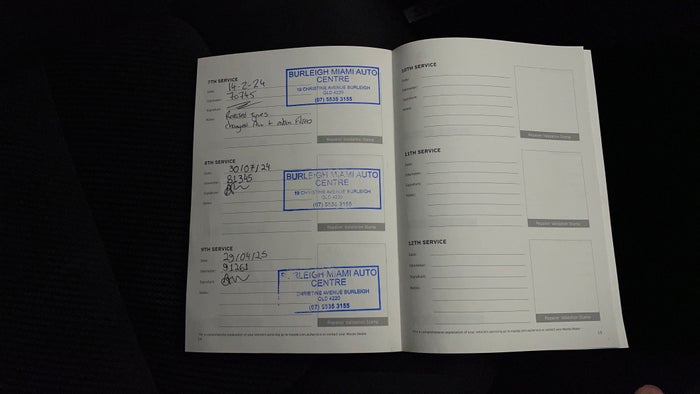 7TH SERVICE
Date: 14-2-24
Odometer: 70745
Signature:
Notes: Rotated Tyres
changed Air + cabin Filters
BURLEIGH MIAMI AUTO
CENTRE
19 CHRISTINE AVENUE BURLEIGH
QLD 4220
(07) 5535 3155
Repairer Validation Stamp
8TH SERVICE
Date: 30/07/24
Odometer: 81345
Signature:
Notes:
BURLEIGH MIAMI AUTO
CENTRE
19 CHRISTINE AVENUE BURLEIGH
QLD 4220
(07) 5535 3155
Repairer Validation Stamp
9TH SERVICE
Date: 29/04/25
Odometer: 91261
Signature:
Notes:
RLEIGH MIAMI AUTO
CENTRE
CHRISTINE AVENUE BURLEIGH
QLD 4220
(07) 5535 3155
Repairer Validation Stamp
14
10TH SERVICE
Date:
Odometer:
Signature:
Notes:
Repairer Validation Stamp
11TH SERVICE
Date:
Odometer:
Signature:
Notes:
Repairer Validation Stamp
12TH SERVICE
Date:
Odometer:
Signature:
Notes:
Repairer Validation Stamp
15